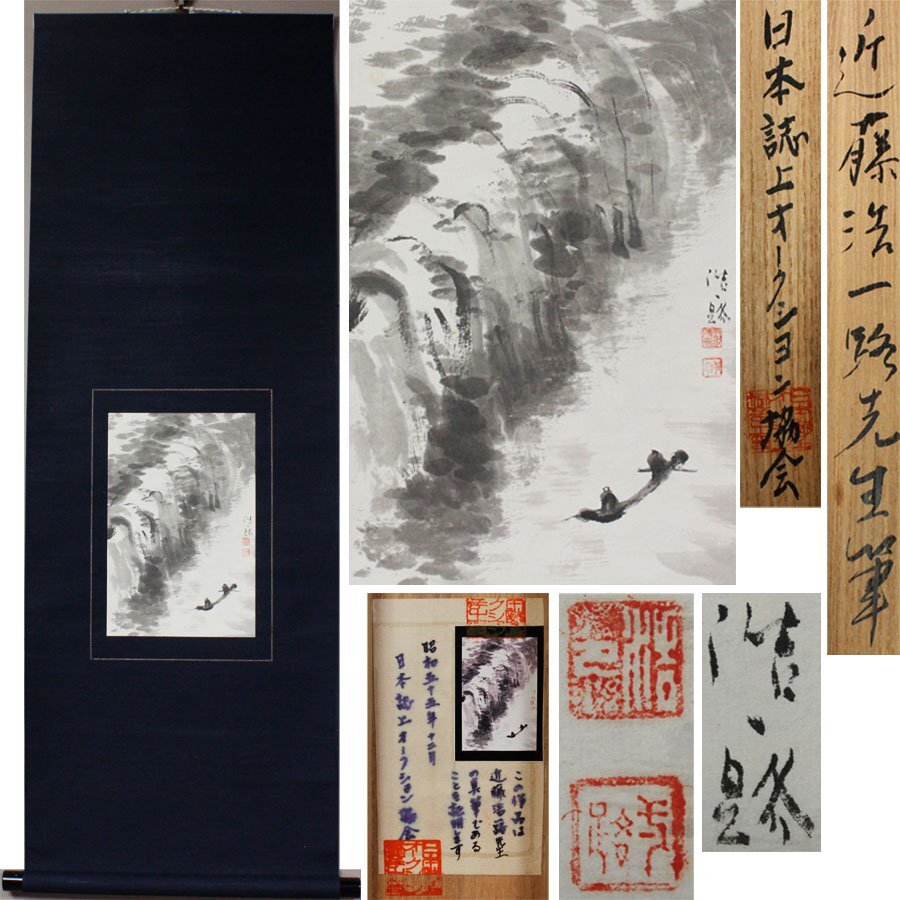 近藤浩一路先生筆
日本誌上オークション協会
浩一路
浩一路
この作品は
近藤浩一路先生
の真筆である
ことを証明します
昭和五十五年十二月
日本誌上オークション協会
浩一路